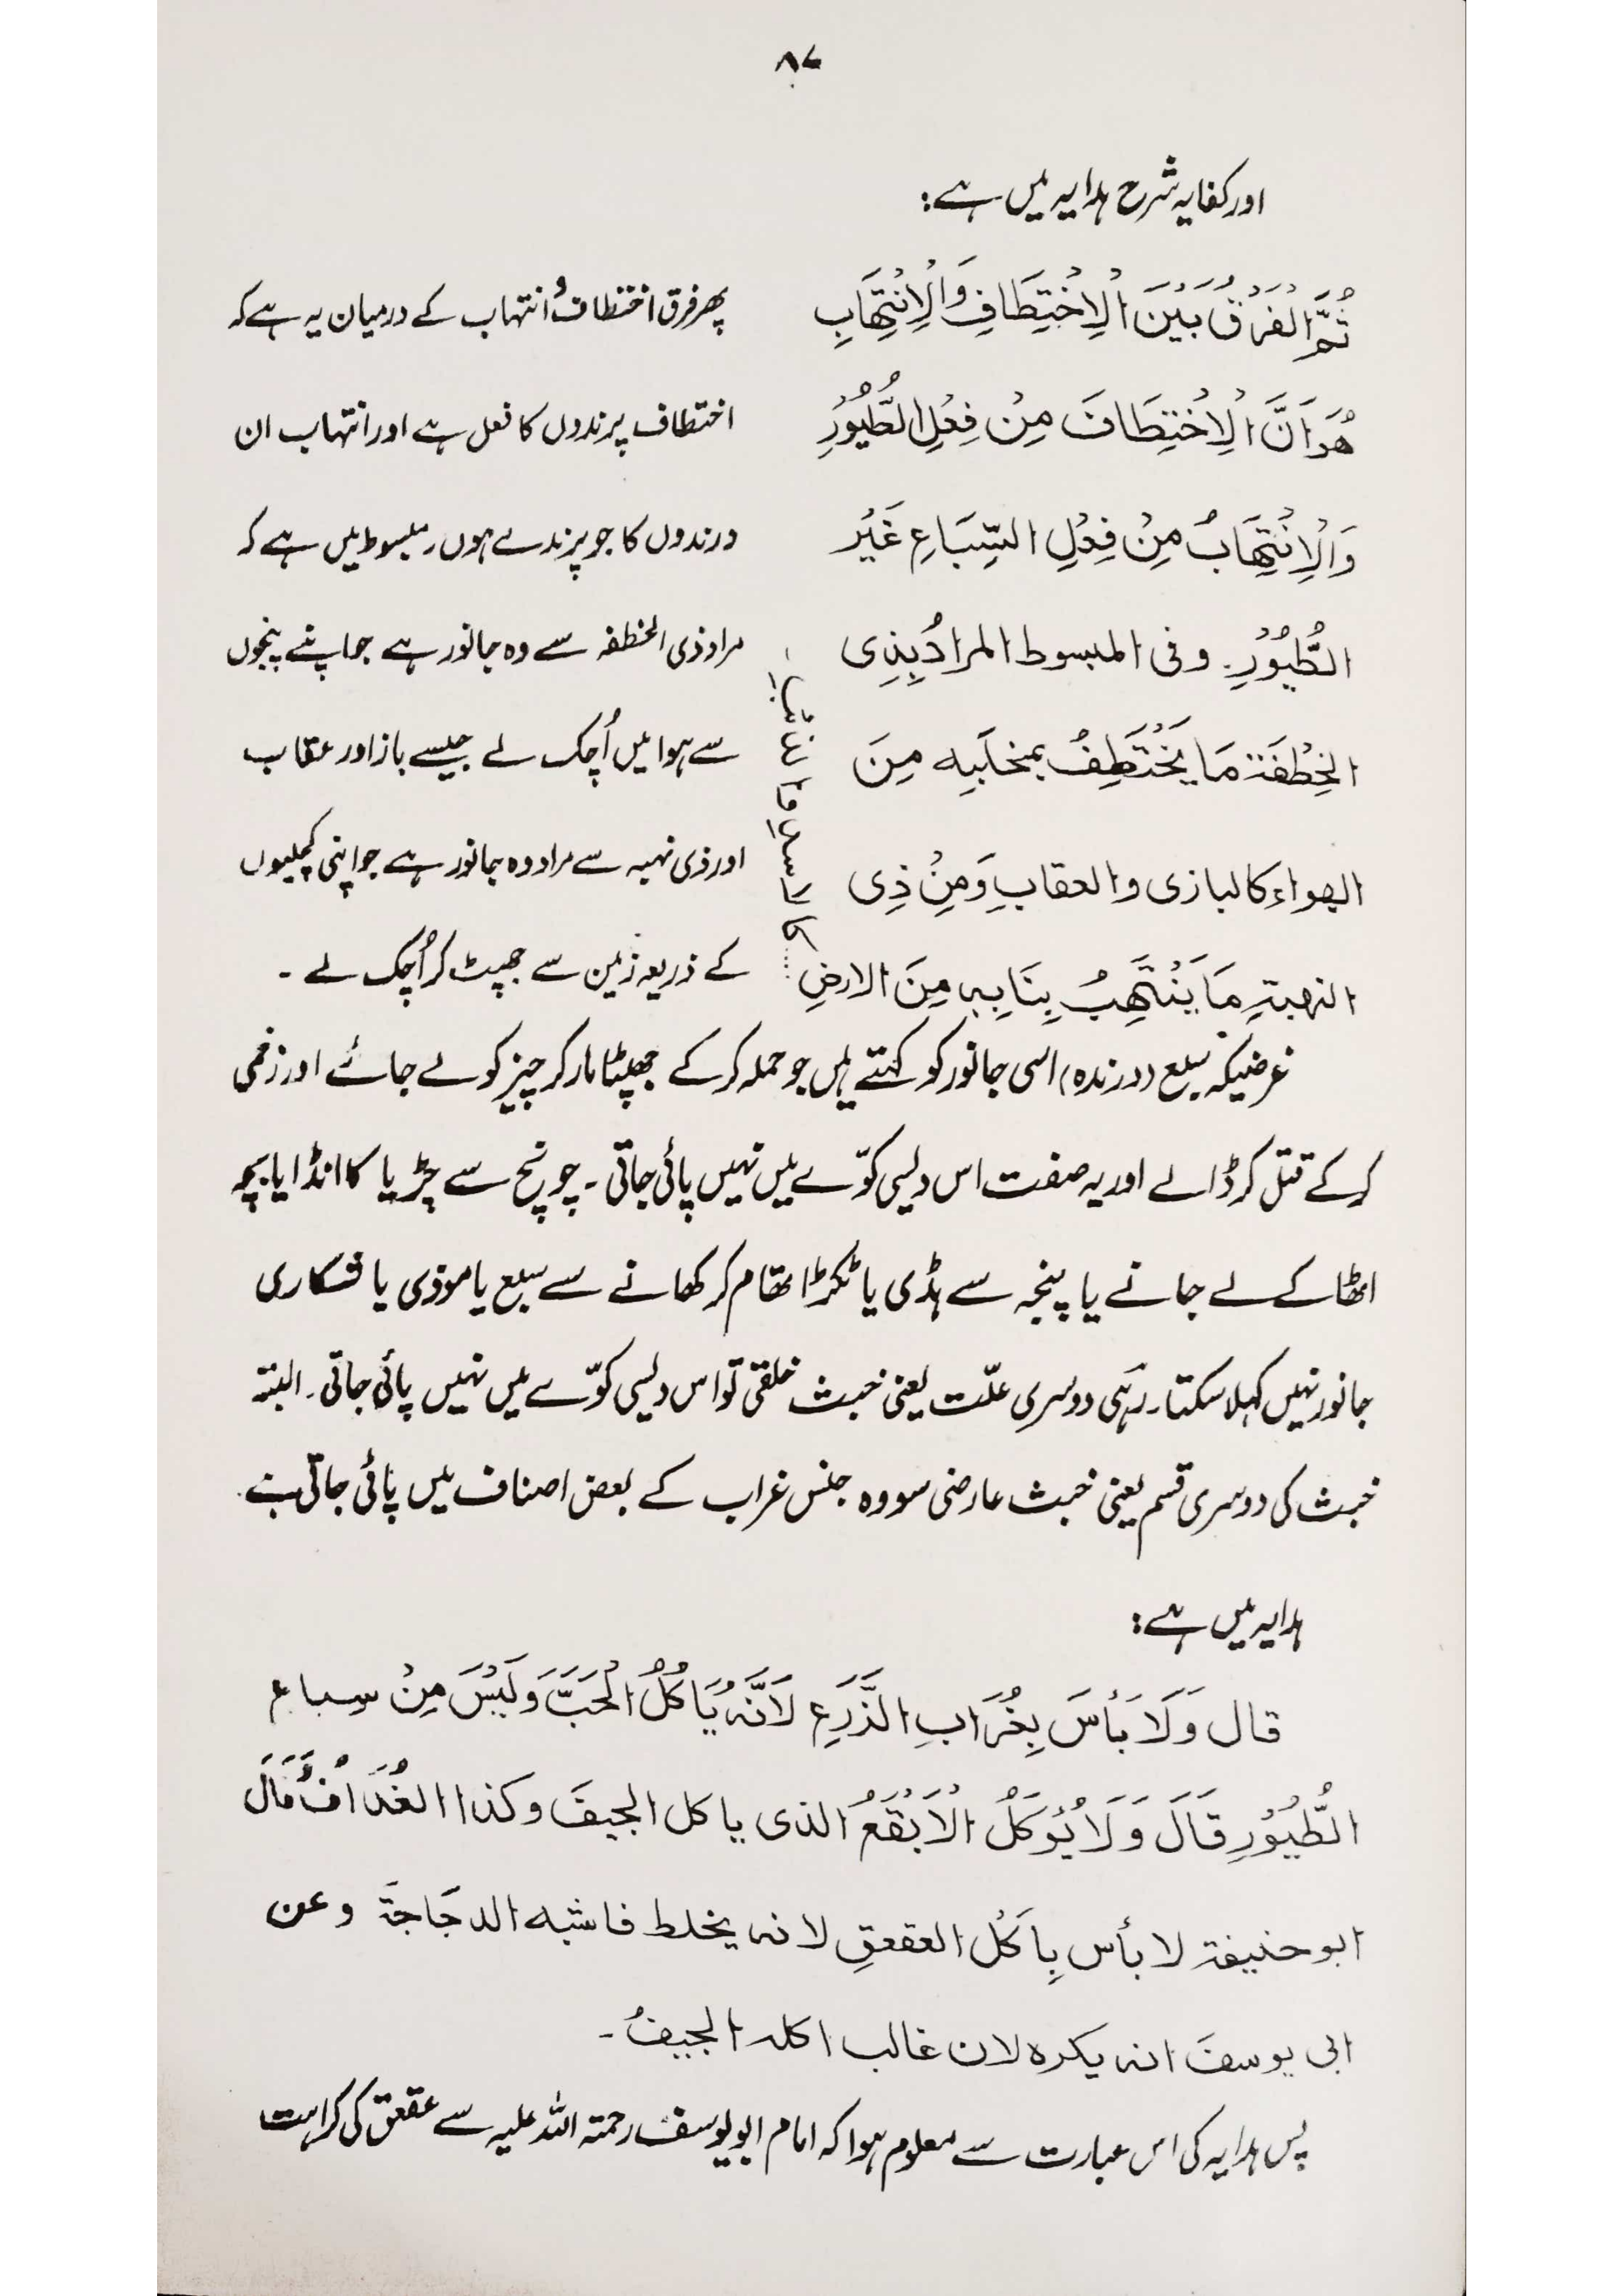 ۸۷
اور کفایہ شرح ہدایہ میں ہے:
ثُمَّ الْفَرْقُ بَيْنَ الْاِخْتِطَافِ وَالْاِنْتِهَابِ
هُوَ اَنَّ الْاِخْتِطَافَ مِنْ فِعْلِ الطُّيُوْرِ
وَالْاِنْتِهَابُ مِنْ فِعْلِ السِّبَاعِ غَيْر
الطُّيُوْرِ. وفی المبسوط المرادُ بِذِی
الخِطْفَة مَا يَخْتَطِفُ بمخلَبِه مِنَ
الهواءِ کالبازی والعقابِ وَمِنْ ذِی
النهبةِ مَا يَنْتَهِبُ بِنَابِهٖ مِنَ الارضِ
پھر فرق اختطاف و انتہاب کے درمیان یہ ہے کہ
اختطاف پرندوں کا فعل ہے اور انتہاب ان
درندوں کا جو پرندے ہوں۔ مبسوط میں ہے کہ
مراد ذی الخطفہ سے وہ جانور ہے جو اپنے پنجوں
سے ہوا میں اُچک لے جیسے باز اور عقاب
اور ذی نہبہ سے مراد وہ جانور ہے جو اپنی کچلیوں
کے ذریعہ زمین سے جھپٹ کر اُچک لے ۔
غرضیکہ سبع (درندہ) اسی جانور کو کہتے ہیں جو حملہ کر کے جھپٹا مار کر چیز کو لے جائے اور زخمی
کر کے قتل کر ڈالے اور یہ صفت اس دیسی کوّے میں نہیں پائی جاتی ۔ چونچ سے چڑیا کا انڈا یا بچہ
اٹھا کے لے جانے یا پنجہ سے ہڈی یا ٹکڑا تھام کر کھانے سے سبع یا موذی یا شکاری
جانور نہیں کہلا سکتا۔ رہی دوسری علّت یعنی خبث خلقی تو اس دیسی کوّے میں نہیں پائی جاتی۔ البتہ
خبث کی دوسری قسم یعنی خبث عارضی سو وہ جنس غراب کے بعض اصناف میں پائی جاتی ہے۔
ہدایہ میں ہے:
قال وَلَا بَأْسَ بِغُرَابِ الزَّرَعِ لَاَنَّهٗ يَاكُلُ الْحَبَّ وَلَيْسَ مِنْ سِباع
الطُّيُوْرِ قَالَ وَلَا يُوْكَلُ الْاَبْقَعُ الذی یاکل الجیفَ وکذا الغُدَافُ قَالَ
ابوحنیفة لا بأس بِاَكْلِ العقعقِ لانه یخلط فاشبه الدجَاجَةَ وعن
ابی یوسفَ انه یکره لان غالب اکله الجیفُ ۔
پس ہدایہ کی اس عبارت سے معلوم ہوا کہ امام ابو یوسف رحمتہ اللہ علیہ سے عقعق کی کراہت